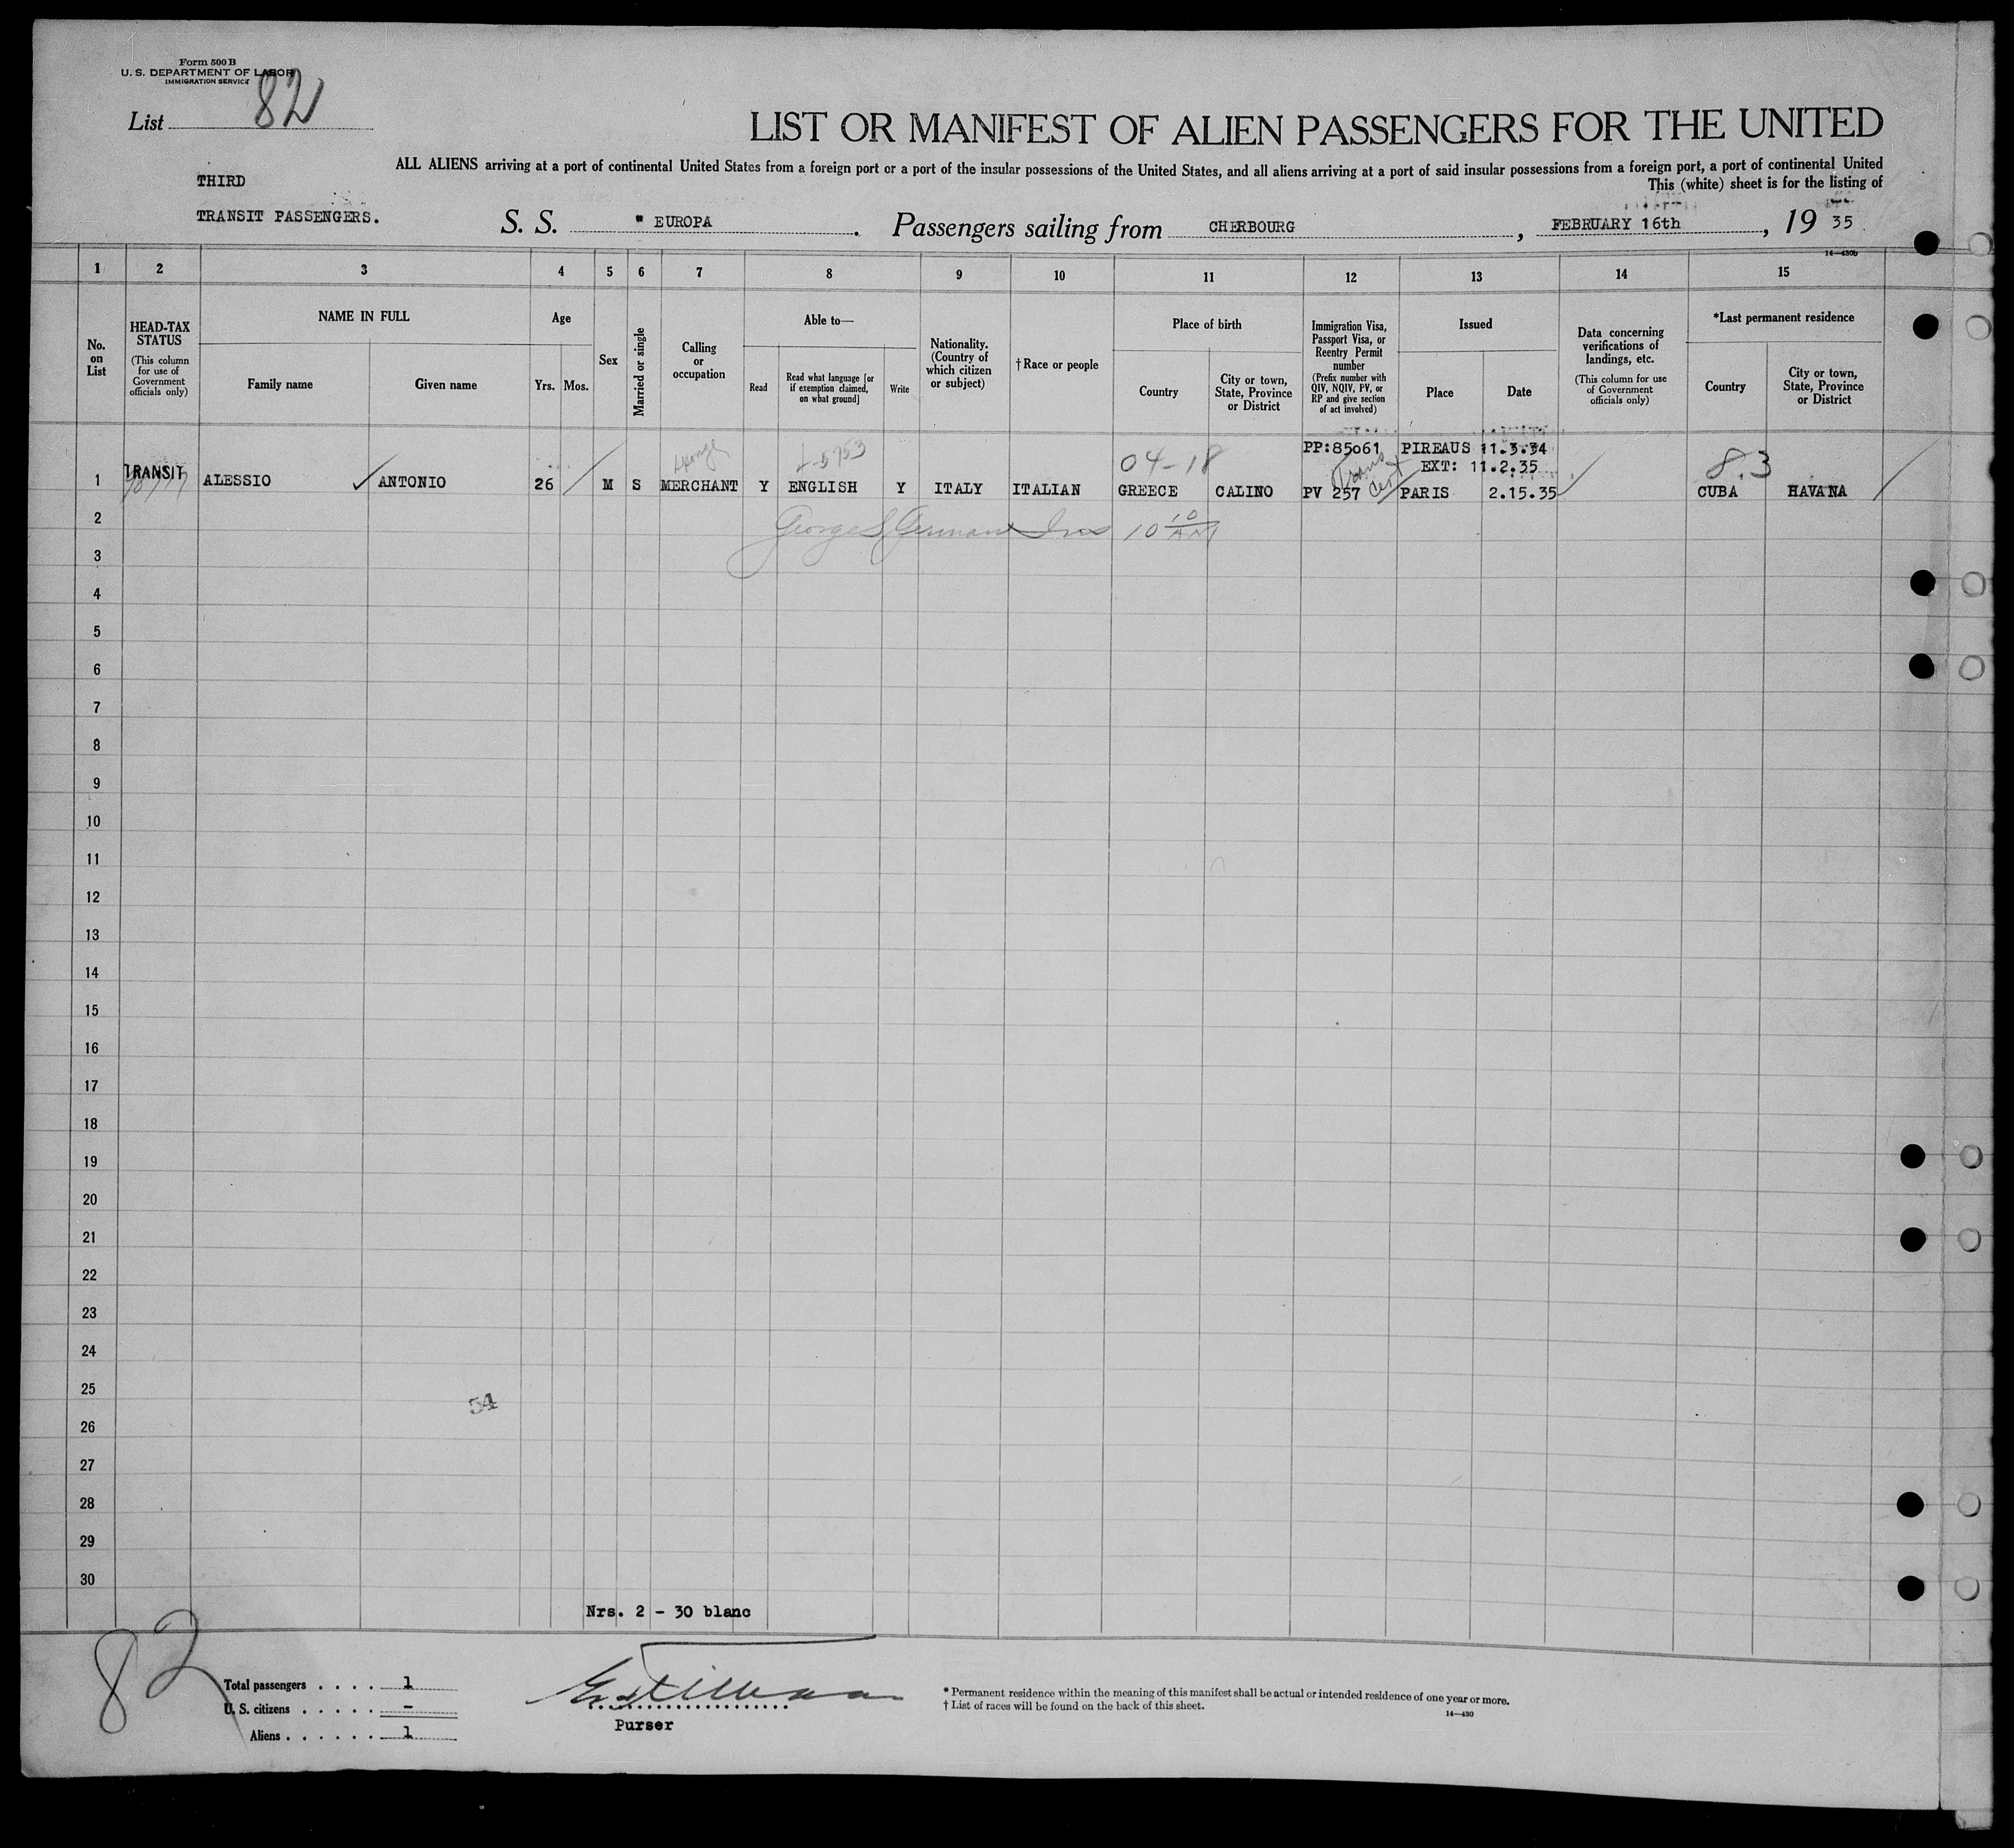 Form 500 B
U. S. DEPARTMENT OF LABOR
IMMIGRATION SERVICE
List 82
LIST OR MANIFEST OF ALIEN PASSENGERS FOR THE UNITED
ALL ALIENS arriving at a port of continental United States from a foreign port or a port of the insular possessions of the United States, and all aliens arriving at a port of said insular possessions from a foreign port, a port of continental United
This (white) sheet is for the listing of
THIRD
TRANSIT PASSENGERS.
S. S. " EUROPA . Passengers sailing from CHERBOURG , FEBRUARY 16th , 19 35
14—430b
1 2 3 4 5 6 7 8 9 10 11 12 13 14 15
No. on List
HEAD-TAX STATUS
(This column for use of Government officials only)
NAME IN FULL
Family name
Given name
Age
Yrs. Mos.
Sex
Married or single
Calling or occupation
Able to—
Read
Read what language [or if exemption claimed, on what ground]
Write
Nationality. (Country of which citizen or subject)
†Race or people
Place of birth
Country
City or town, State, Province or District
Immigration Visa, Passport Visa, or Reentry Permit number
(Prefix number with QIV, NQIV, PV, or RP and give section of act involved)
Issued
Place
Date
Data concerning verifications of landings, etc.
(This column for use of Government officials only)
*Last permanent residence
Country
City or town, State, Province or District
sponge 04-18 PP:85061 PIREAUS 11.3.34 8.3
TRANSIT Trans EXT: 11.2.35
1 ALESSIO ANTONIO 26 M S MERCHANT Y ENGLISH Y ITALY ITALIAN GREECE CALINO PV 257 Cert PARIS 2.15.35 CUBA HAVANA
2 George S German Ins 10 10 AM
3
4
5
6
7
8
9
10
11
12
13
14
15
16
17
18
19
20
21
22
23
24
25
54
26
27
28
29
30
Nrs. 2 - 30 blanc
82
Total passengers . . . . 1
U. S. citizens . . . . . –
Aliens . . . . . . 1
Purser
* Permanent residence within the meaning of this manifest shall be actual or intended residence of one year or more.
† List of races will be found on the back of this sheet.
14—430